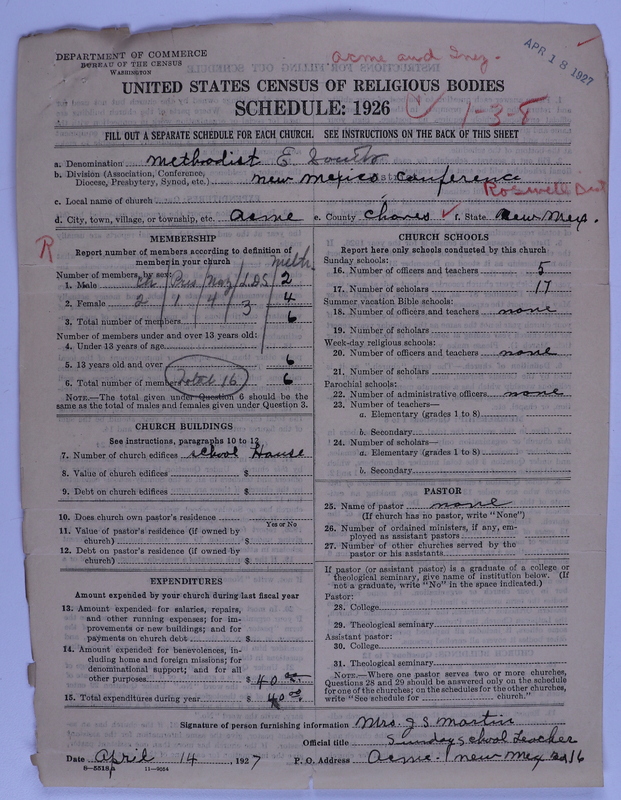 DEPARTMENT OF COMMERCE
BUREAU OF THE CENSUS
WASHINGTON
Acme and Inez.
APR 18 1927
UNITED STATES CENSUS OF RELIGIOUS BODIES
SCHEDULE: 1926
1-3-8
FILL OUT A SEPARATE SCHEDULE FOR EACH CHURCH. SEE INSTRUCTIONS ON THE BACK OF THIS SHEET
a. Denomination Methodist E South
b. Division (Association, Conference, Diocese, Presbytery, Synod, etc.) New Mexico Conference
Roswell Dist
c. Local name of church
d. City, town, village, or township, etc. Acme e. County Chaves f. State New Mex.
R
MEMBERSHIP
Report number of members according to definition of member in your church
Meth.
Number of members, by sex:
1. Male Ch Pres Naz L.D.S 2
2. Female 2 1 4 3 4
3. Total number of members 6
Number of members under and over 13 years old:
4. Under 13 years of age
5. 13 years old and over 6
6. Total number of mem Total 16 6
NOTE.—The total given under Question 6 should be
same as the total of males and females given under Question 3.
CHURCH BUILDINGS
See instructions, paragraphs 10 to 12
7. Number of church edifices School House
8. Value of church edifices $
9. Debt on church edifices $
10. Does church own pastor's residence
Yes or No
11. Value of pastor's residence (if owned by
church) $
12. Debt on pastor's residence (if owned by
church) $
EXPENDITURES
Amount expended by your church during last fiscal year
13. Amount expended for salaries, repairs,
and other running expenses; for im-
provements or new buildings; and for
payments on church debt $
14. Amount expended for benevolences, in-
cluding home and foreign missions; for
denominational support; and for all
other purposes $ 40 00
15. Total expenditures during year $ 40 00
CHURCH SCHOOLS
Report here only schools conducted by this church
Sunday schools:
16. Number of officers and teachers 5
17. Number of scholars 17
Summer vacation Bible schools:
18. Number of officers and teachers none
19. Number of scholars
Week-day religious schools:
20. Number of officers and teachers none
21. Number of scholars
Parochial schools:
22. Number of administrative officers none
23. Number of teachers—
a. Elementary (grades 1 to 8)
b. Secondary
24. Number of scholars—
a. Elementary (grades 1 to 8)
b. Secondary
PASTOR
25. Name of pastor none
(If church has no pastor, write "None")
26. Number of ordained ministers, if any, em-
ployed as assistant pastors
27. Number of other churches served by the
pastor or his assistants
If pastor (or assistant pastor) is a graduate of a college or
theological seminary, give name of institution below. (If
not a graduate, write "No" in the space indicated.)
Pastor:
28. College
29. Theological seminary
Assistant pastor:
30. College
31. Theological seminary
NOTE.—Where one pastor serves two or more churches,
Questions 28 and 29 should be answered only on the schedule
for one of the churches; on the schedules for the other churches,
write "See schedule for church."
Signature of person furnishing information Mrs. J S Martin
Official title Sunday School Teacher
Date April 14, 1927 P. O. Address Acme. New Mex
8—5518 11—9054